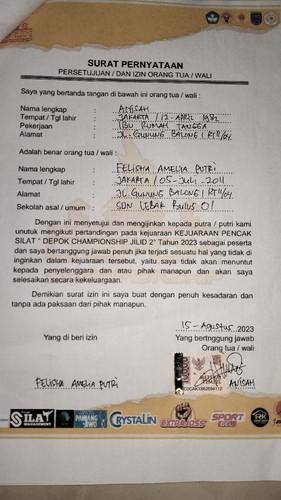 SURAT PERNYATAAN
PERSETUJUAN / DAN IZIN ORANG TUA / WALI
Saya yang bertanda tangan di bawah ini orang tua / wali :
Nama lengkap : ANISAH
Tempat / Tgl lahir : JAKARTA / 12 - APRIL 1982
Pekerjaan : IBU RUMAH TANGGA
Alamat : JL. GUNUNG BALONG I RT11/04
Adalah benar orang tua / wali :
Nama lengkap : FELISHA AMELIA PUTRI
Tempat / Tgl lahir : JAKARTA / 05 - JULI 2011
Alamat : JL GUNUNG BALONG I RT11/04
Sekolah asal / umum : SDN LEBAK BULUS 01
Dengan ini menyetujui dan mengijinkan kepada putra / putri kami
unutuk mengikuti pertandingan pada kejuaraan KEJUARAAN PENCAK
SILAT " DEPOK CHAMPIONSHIP JILID 2" Tahun 2023 sebagai peserta
dan saya bertanggung jawab penuh jika terjad sesuatu hal yang tidak di
inginkan dalam kejuaraan tersebut, yaitu saya tidak akan menuntut
kepada penyelenggara dan atau pihak manapun dan akan saya
selesaikan secara kekeluargaan.
Demikian surat izin ini saya buat dengan penuh kesadaran dan
tanpa ada paksaan dari pihak manapun.
15 - Agustus 2023
Yang di beri izin
Yang bertnggung jawab
Orang tua / wali
METERAI
TEMPEL
FELISHA AMELIA PUTRI
ANISAH
SILAT
MANAGEMENT
CRYSTALIN
EXTRA JOSS
SPORT